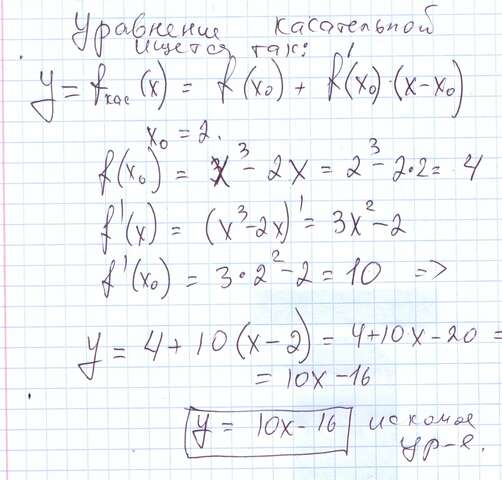 Уравнение касательной
ищется так:
y = fкас (x) = f(x₀) + f'(x₀)·(x-x₀)
x₀ = 2.
f(x₀) = x³ - 2x = 2³ - 2·2 = 4
f'(x) = (x³-2x)' = 3x² - 2
f'(x₀) = 3·2² - 2 = 10 =>
y = 4 + 10(x-2) = 4+10x-20 =
= 10x-16
y = 10x-16 искомое
ур-е.